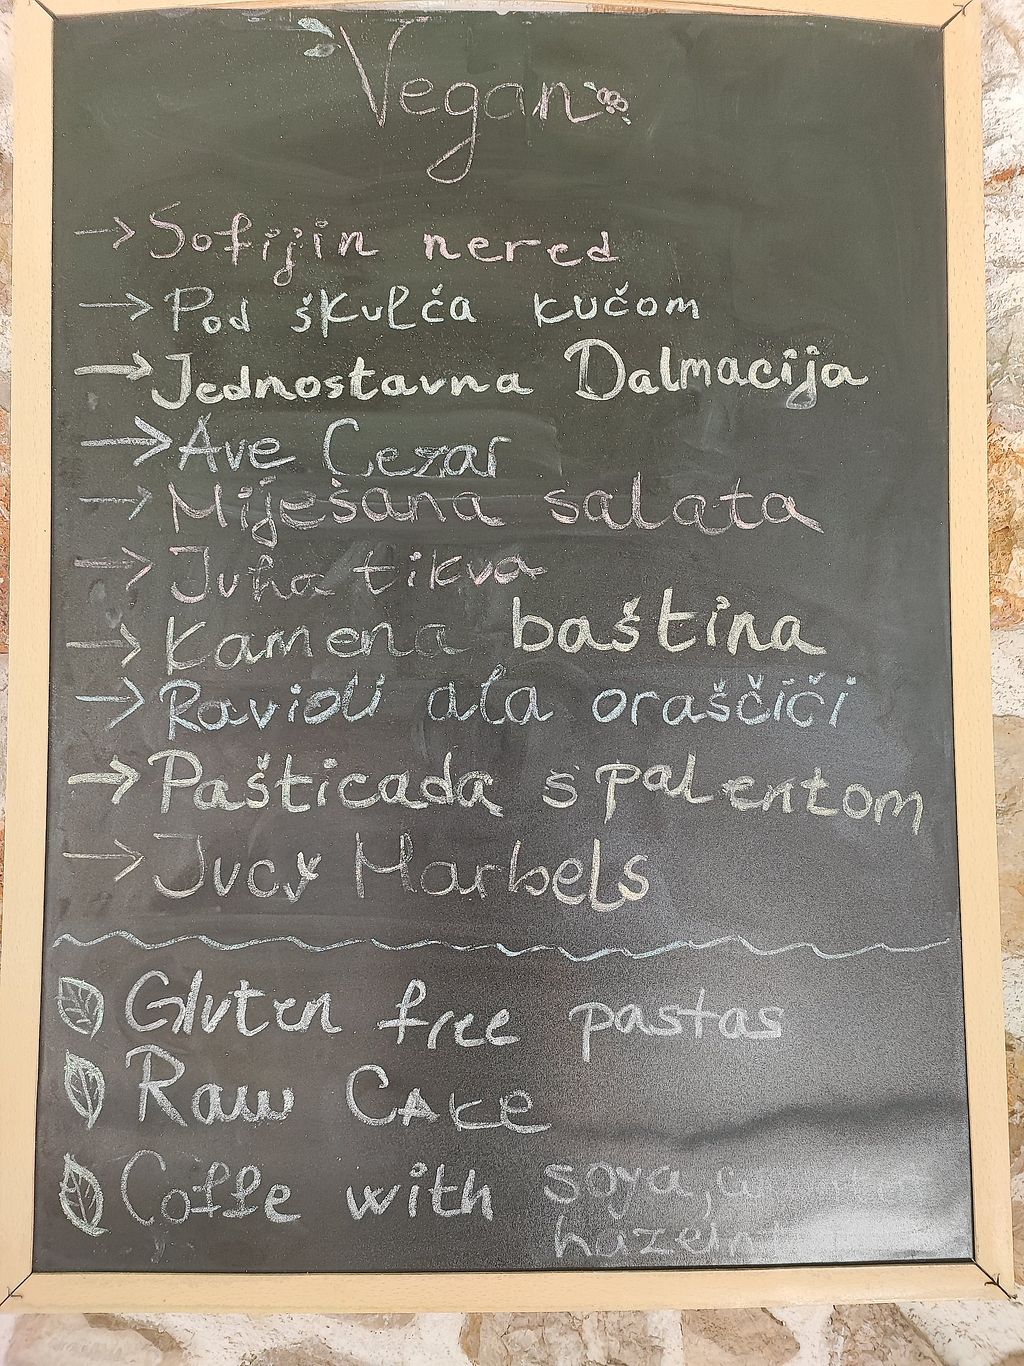 Vegan
→ Sofijin nered
→ Pod škulča kučom
→ Jednostavna Dalmacija
→ Ave Cezar
→ Miješana salata
→ Juha tikva
→ Kamena baština
→ Ravioli ala oraščiči
→ Pašticada s palentom
→ Jucy Marbels
Gluten free pastas
Raw Cake
Coffe with soya,